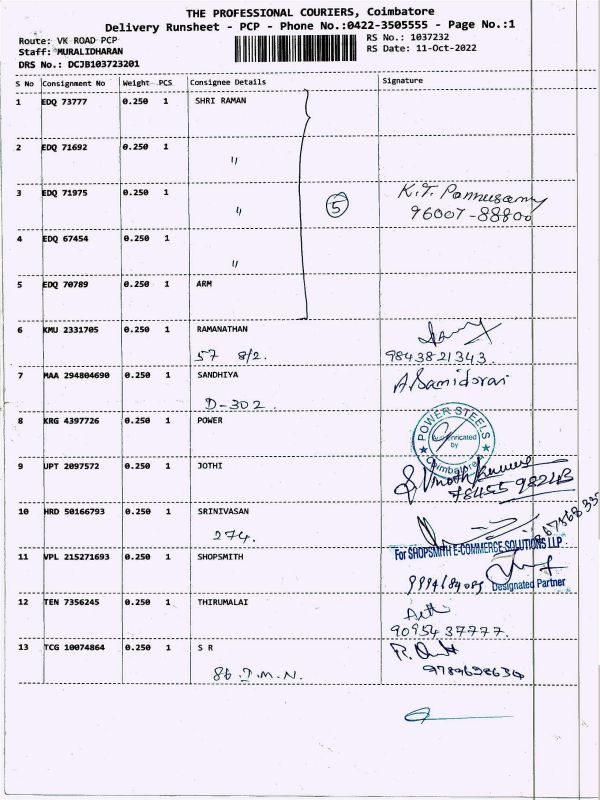 THE PROFESSIONAL COURIERS, Coimbatore
Delivery Runsheet - PCP - Phone No.:0422-3505555 - Page No.:1
Route: VK ROAD PCP
RS No.: 1037232
Staff: MURALIDHARAN
RS Date: 11-Oct-2022
DRS No.: DCJB103723201
S No Consignment No Weight PCS Consignee Details Signature
1 EDQ 73777 0.250 1 SHRI RAMAN
2 EDQ 71692 0.250 1
"
3 EDQ 71975 0.250 1 K.T. Ponnusamy
" 5 96007-88800
4 EDQ 67454 0.250 1
"
5 EDQ 70789 0.250 1 ARM
6 KMU 2331705 0.250 1 RAMANATHAN
57 8/2. 9843821343.
7 MAA 294804690 0.250 1 SANDHIYA A Samidorai
D-302
8 KRG 4397726 0.250 1 POWER
POWER STEELS
Authenticated
by
Coimbatore
9 UPT 2097572 0.250 1 JOTHI
78455 98243
10 HRD 50166793 0.250 1 SRINIVASAN
274.
For SHOPSMITH E-COMMERCE SOLUTIONS LLP
11 VPL 215271693 0.250 1 SHOPSMITH
Designated Partner
12 TEN 7356245 0.250 1 THIRUMALAI
9095437777.
13 TCG 10074864 0.250 1 S R
86.